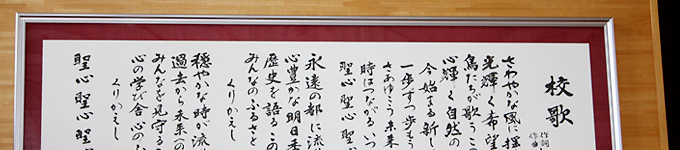 校歌
作詞
作曲
さわやかな風に
光輝く希望
鳥たちが歌うこ
心輝く自然の
今始まる新し
一歩ずつ歩もう
さあゆこう未来
時はつながるいつ
聖心聖心聖
永遠の都に流
心豊かな明日
歴史を語るこの
みんなのふるさと
くりかえし
穏やかな時が流
過去から未来への
みんなを見守る
心の学び舎心のふ
くりかえし
聖心聖心聖